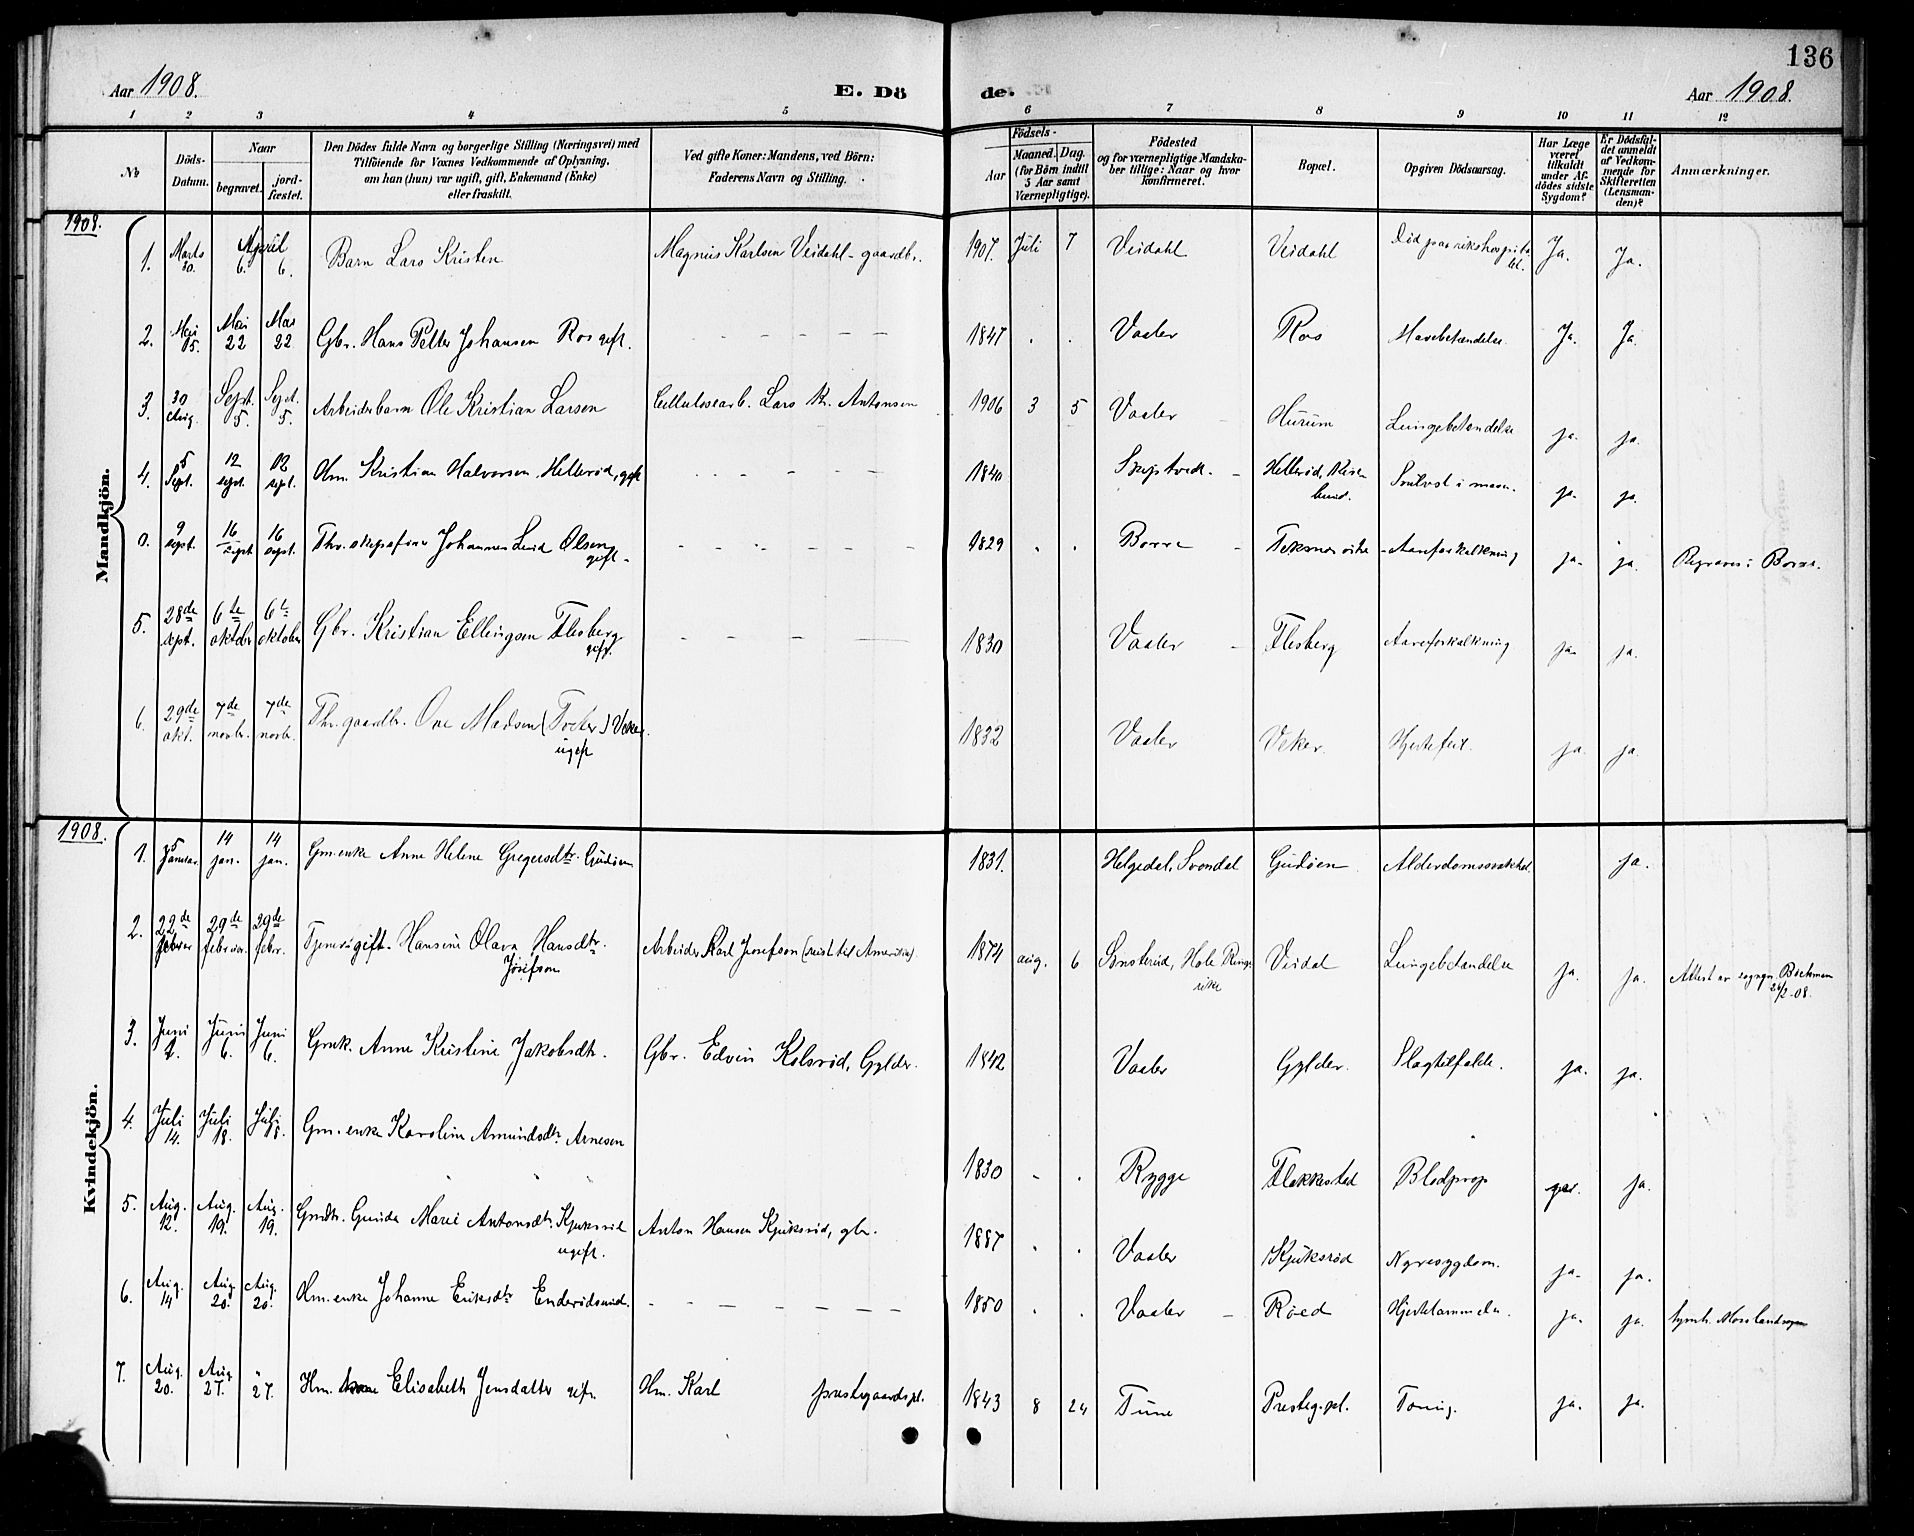 136
Aar 1908.
E. Dö
de.
Aar 1908.
1 2 3 4 5 6 7 8 9 10 11 12
No
Döds-Datum.
Naar
begravet.
jord-fæstet.
Den Dödes fulde Navn og borgerlige Stilling (Næringsvei) med
Tilföiende for Voxnes Vedkommende af Oplysning,
om han (hun) var ugift, gift, Enkemand (Enke)
eller fraskilt.
Ved gifte Koner: Mandens, ved Börn:
Faderens Navn og Stilling.
Födsels-
Aar
Maaned. Dag.
(for Börn indtil
5 Aar samt
Værnepligtige).
Födested
og for værnepligtige Mandska-
ber tillige: Naar og hvor
konfirmeret.
Bopæl.
Opgiven Dödsaarsag.
Har Læge
været
tilkaldt
under Af-
dödes sidste
Sygdom?
Er Dödsfal-
det anmeldt
af Vedkom-
mende for
Skifteretten
(Lensman-
den)?
Anmærkninger.
Mandkjön.
1908.
1. Marts 30. April 6. 6. Barn Lars Kristen Magnus Karlsen Veidahl - gaardbr. 1907. Juli 7 Veidahl Veidahl Död paa rikshospitalet. Ja. Ja.
2. Mai 15. Mai 22 Mai 22 Gbr. Hans Petter Johansen Ros gift. 1847 Vaaler Ros Mavebetændelse. Ja. Ja.
3. 30 Aug. Sept. 5. Sept. 5. Arbeiderbarn Ole Kristian Larsen Cellulosearb. Lars Kr. Antonsen 1906 3 5 Vaaler Hurum Lungebetændelse ja. ja.
4. 5 Sept. 12 sept. 12 sept. Hm. Kristian Halvorsen Hellerød, gift 1840 Skiptvedt. Hellerød, i maven. ja. ja.
0. 9 sept. 16 sept 16 sept. Fhv. skipsfører Johannes Olsen gift. 1829 Borre Aareforkalkning ja. ja. Begraves i Borre.
5. 28de sept. 6te oktober 6te oktober Gbr. Kristian Ellingsen Flesberg gift. 1830 Vaaler Flesberg Aareforkalkning ja. ja.
6. 29de okt. 7de novbr. 7de novbr. Fhv. gaardbr. Ove Madsen (Focker) Veker. ugift 1832 Vaaler Veker. Hjertefeil. ja. ja.
Kvindekjön.
1908.
1. 5 Januar. 14 jan. 14 jan. Gm. enke Anne Helene Gregersdtr. Gudøen 1831. Helgedal, Svendal Gudøen Alderdomssvakhet. ja.
2. 22de februar 29de februar 29de febr. gift. Hansine Olava Hansdtr. Josefson Arbeider Karl Josefson (reist til Amerika). 1874 aug. 6 Sønsterud, Hole Ringerike Veidal Lungebetændelse ja. ja. Attest av sogngpr. Bockman 26/2-08.
3. Juni 2. Juni 6. Juni 6. Gmk. Anne Kristine Jakobsdtr. Gbr. Edvin Kolsrød, Gylder. 1842 Vaaler Gylder. Slagtilfælde. ja. ja.
4. Juli 14. Juli 18. Juli 18. Gm. enke Karoline Amundsdtr. Arnesen 1830 Rygge Flakkestad Blodprop ja. ja.
5. Aug. 12. Aug. 19. Aug. 19. Gmdtr. Gunda Marie Antonsdtr. Kjuksrød ugift. Anton Hansen Kjuksrød, gbr. 1887 Vaaler Kjuksrød Nyresygdom. ja. ja.
6. Aug. 14 Aug. 20. Aug. 20. Hm. enke Johanne Eriksdtr Enderødsund. 1850 Vaaler Røed Hjertelammelse. ja. ja. Mosslandsogn
7. Aug. 20. Aug. 27. " 27. Hm. kone Elisabeth Jensdatter gift. Hm. Karl prestegaardspl. 1843 8 24 Tune Presteg.pl. Tæring. ja. ja.